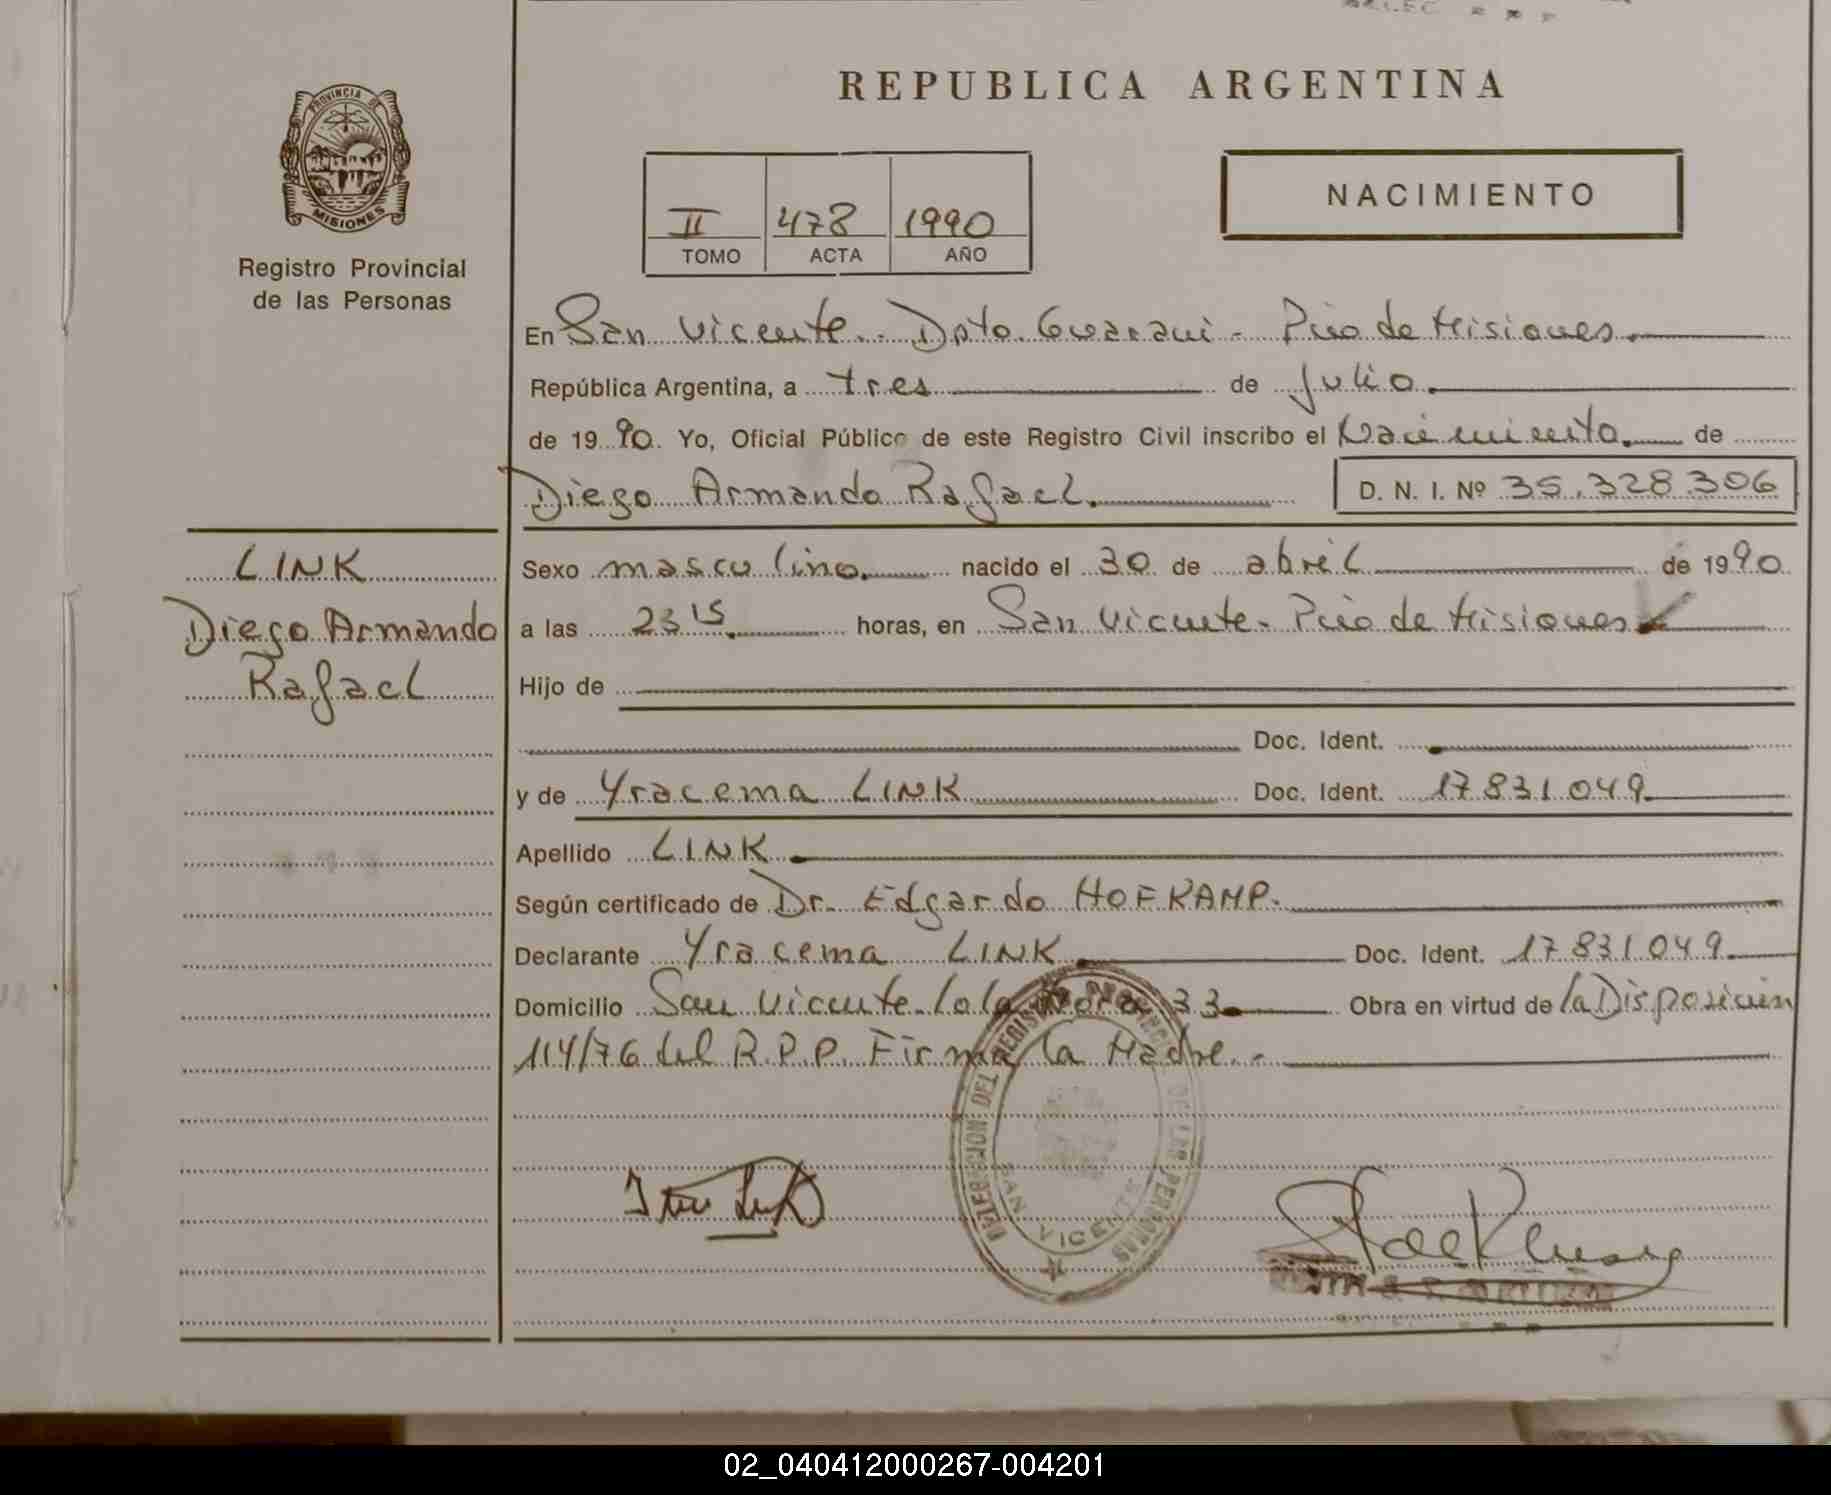 REPUBLICA ARGENTINA
PROVINCIA DE
MISIONES
Registro Provincial
de las Personas
II 478 1990
TOMO ACTA AÑO
NACIMIENTO
En San Vicente.- Dpto. Guarani - Pcia de Misiones.
República Argentina, a tres de Julio.
de 1990. Yo, Oficial Público de este Registro Civil inscribo el Nacimiento. de
Diego Armando Rafael. D. N. I. Nº 35.328.306
LINK
Diego Armando
Rafael
Sexo masculino. nacido el 30 de abril de 1990
a las 23 15. horas, en San Vicente - Pcia de Misiones
Hijo de
Doc. Ident.
y de Yracema LINK Doc. Ident. 17831049
Apellido LINK.
Según certificado de Dr. Edgardo HOFKAMP.
Declarante Yracema LINK Doc. Ident. 17831049
Domicilio San Vicente - Lola Mora 33 Obra en virtud de la Disposición
114/76 del R.P.P. Firma la Madre.-
DEL REGISTRO DE LAS PERSONAS
SAN VICENTE
02_040412000267-004201